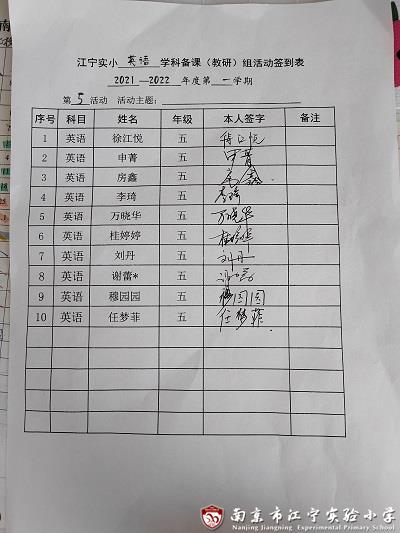 江宁实小 英语 学科备课（教研）组活动签到表
2021—2022 年度第 一 学期
第 5 活动 活动主题：
序号 科目 姓名 年级 本人签字 备注
1 英语 徐江悦 五 徐江悦
2 英语 申菁 五 申菁
3 英语 房鑫 五 房鑫
4 英语 李琦 五 李琦
5 英语 万晓华 五 万晓华
6 英语 桂婷婷 五 桂婷婷
7 英语 刘丹 五 刘丹
8 英语 谢蕾* 五
9 英语 穆园园 五 穆园园
10 英语 任梦菲 五 任梦菲
南京市江宁实验小学
Nanjing Jiangning Experimental Primary School